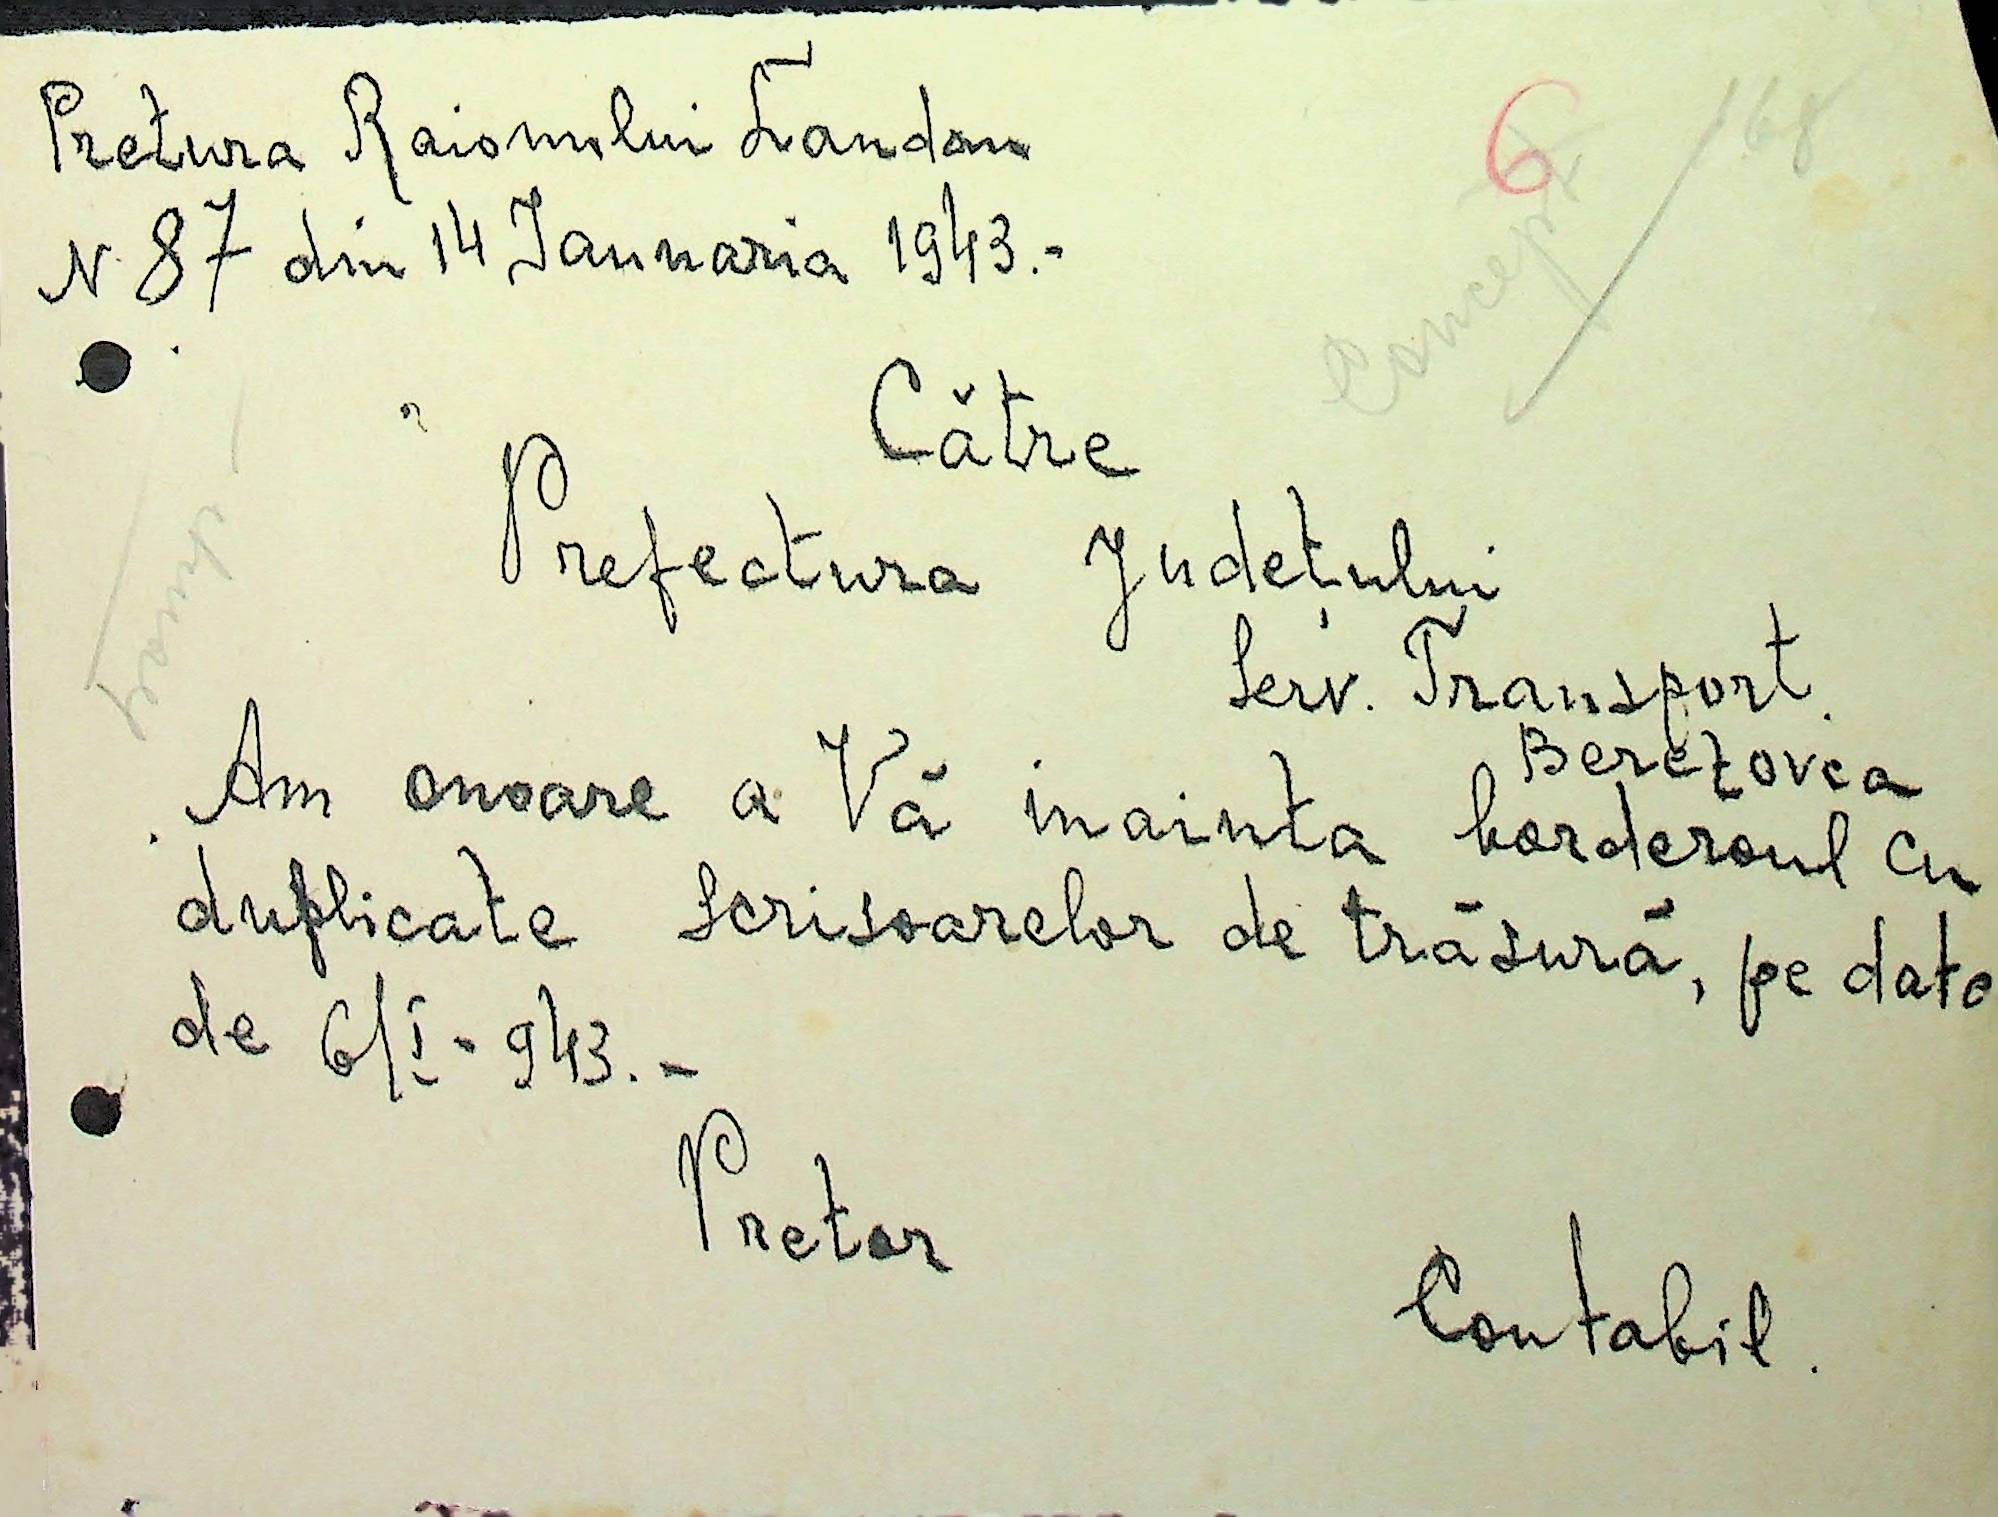 6
168
Concept
Pretura Raionului Landau
N. 87 din 14 Januaria 1943.-
Către
Prefectura Județului
Serv. Transport.
Berezovca
Am onoare a Vă inainta borderoul cu
duplicate scrisoarelor de trăsură, pe data
de 6/I - 943.-
Pretor
Contabil.